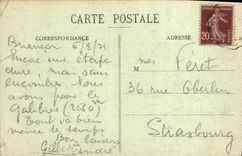 CARTE POSTALE
CORRESPONDANCE
Briançon 6/8/31
Encore une étape
dure, mais sans
encombres. Nous
avons passé le
Galibier (2560)
Tout va bien
même le temps
Bons baisers
Gilbert André
20
Mes Péret
36 rue Oberlin
Strasbourg